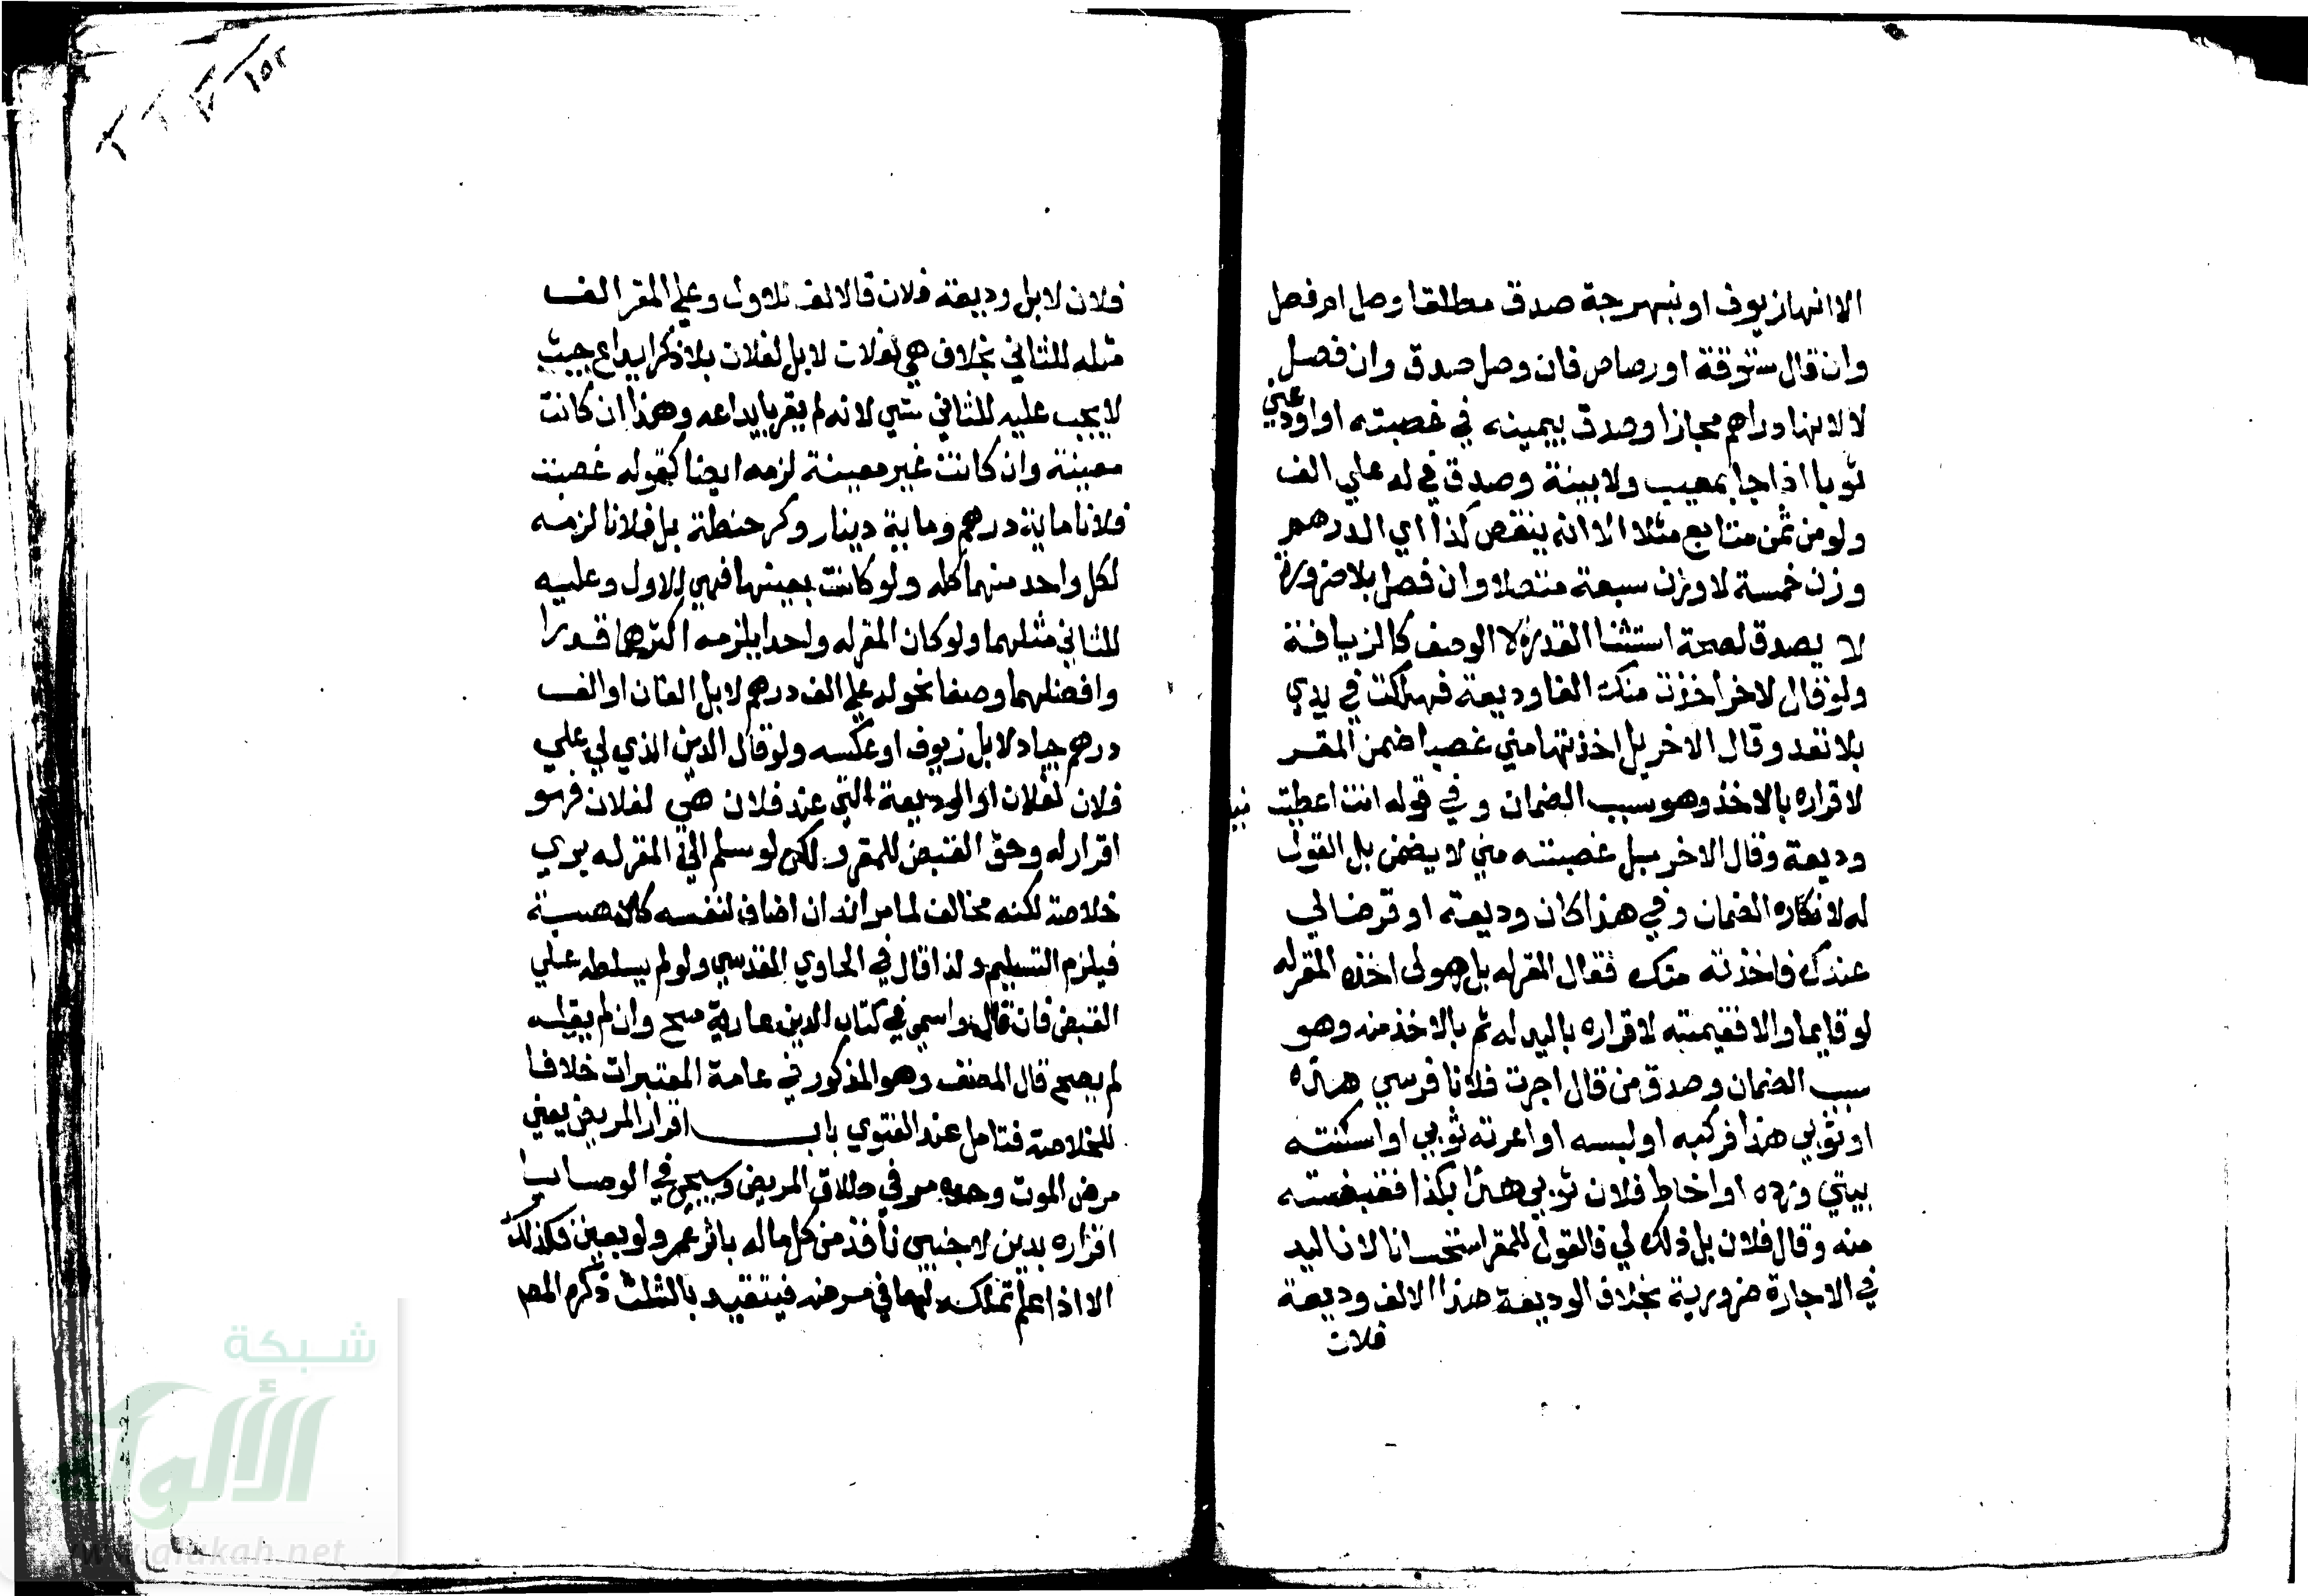 الا انها زيوف او نبهرجة صدق مطلقا وصل ام فصل
وان قال ستوقة او رصاص فان وصل صدق وان فصل
لا لانها دراهم مجازا وصدق بيمينه في غصبته او اودعني
ثوبا اذا جا بمعيب ولا بينة وصدق في له علي الف
ولو من ثمن متاع مثلا الا انه ينقص كذا اي الدرهم
وزن خمسة لا وزن سبعة متصلا وان فصل بلا ضرورة
لا يصدق لصحة استثنا القدر لا الوصف كالزيافة
ولو قال لاخر اخذت منك الفا وديعة فهلكت في يدي
بلا تعد وقال الاخر بل اخذتها مني غصبا ضمن المقر
لاقراره بالاخذ وهو سبب الضمان وفي قوله انت اعطيتنيه
وديعة وقال الاخر بل غصبته مني لا يضمن بل القول
له لانكاره الضمان وفي هذا كان وديعة او قرضا لي
عندك فاخذته منك فقال المقر له بل هو لي اخذه المقر له
لو قايما والا فقيمته لاقراره باليد له ثم بالاخذ منه وهو
سبب الضمان وصدق من قال اجرت فلانا فرسي هذه
او ثوبي هذا فركبه او لبسه او اعرته ثوبي او اسكنته
بيتي ورده او اخاط فلان ثوبي هذا بكذا فقبضته
منه وقال فلان بل ذلك لي فالقول للمقر استحسانا لان اليد
في الاجارة ضرورية بخلاف الوديعة هذا الالف وديعة
فلان
فلان لا بل وديعة فلان فالالف للاول وعلي المقر الف
مثله للثاني بخلاف هي لفلان لا بل لفلان بلا ذكر ايداع حيث
لا يجب عليه للثاني شي لانه لم يقر بايداعه وهذا ان كانت
معينة وان كانت غير معينة لزمه ايضا كقوله غصبت
فلانا ماية درهم وماية دينار وكر حنطة بل فلانا لزمه
لكل واحد منهما كله ولو كانت بعينها فهي للاول وعليه
للثاني مثلهما ولو كان المقر له واحدا يلزمه اكثرهما قدرا
وافضلهما وصفا نحو له علي الف درهم لا بل الفان او الف
درهم جياد لا بل زيوف او عكسه ولو قال الدين الذي لي علي
فلان لفلان او الوديعة التي عند فلان هي لفلان فهو
اقرار له وحق القبض للمقر ولكن لو سلم الي المقر له بري
خلاصة لكنه مخالف لما مر انه ان اضاف لنفسه كان هبة
فيلزم التسليم ولذا قال في الحاوي المقدسي ولو لم يسلطه علي
القبض فان قال واسمي في كتاب الدين عارية صح وان لم يقله
لم يصح قال المصنف وهو المذكور في عامة المعتبرات خلافا
للخلاصة فتامل عند الفتوي باب اقرار المريض يعني
مرض الموت وحده مر في طلاق المريض وسيجي في الوصايا
اقراره بدين لاجنبي نافذ من كل ماله باثر عمر ولو بعين فكذلك
الا اذا علم تملكه لها في مرضه فيتقيد بالثلث ذكره المص
١٥٢
شبكة
الألوكة
www.alukah.net